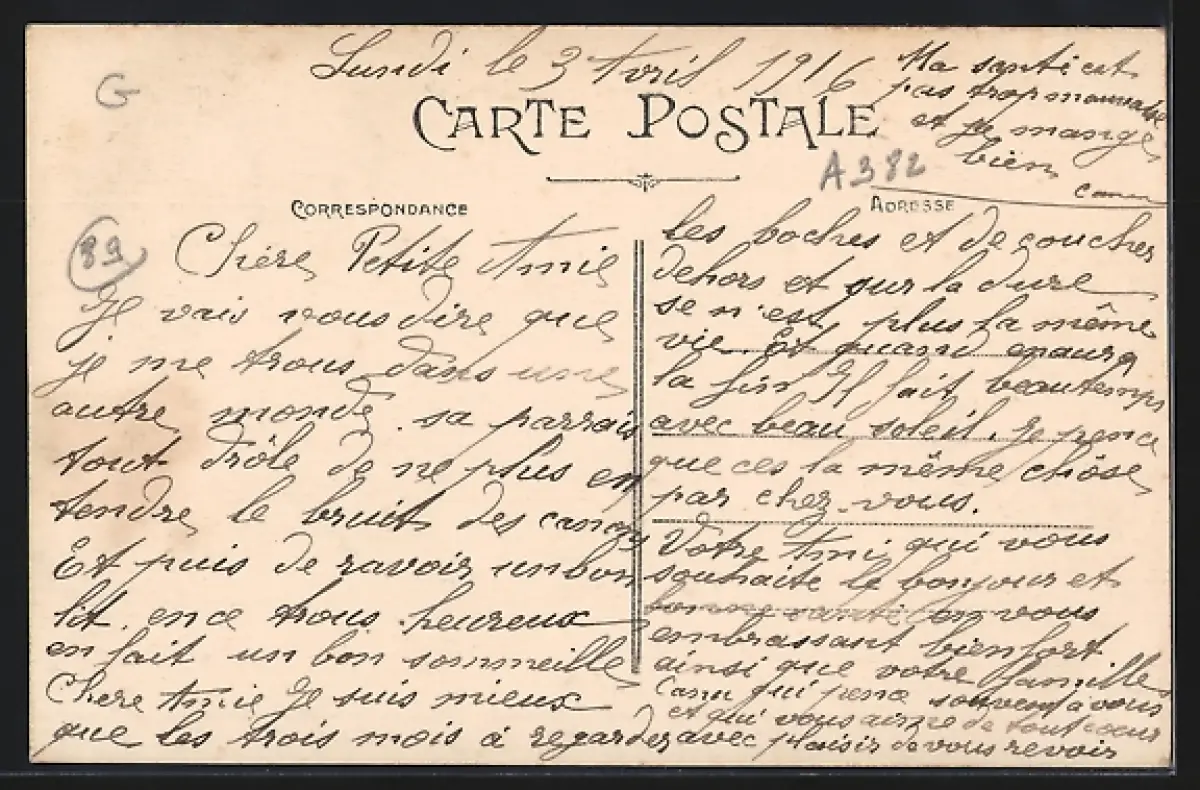 G
Lundi le 3 Avril 1916
Ma santé est
pas trop mauvaise
et je mange
bien
CARTE POSTALE
A382
CORRESPONDANCE
ADRESSE
89
Chére Petite Amie
Je vais vous dire que
je me trous dans une
autre monde. sa parrais
tout drôle de ne plus en
tendre le bruit des canons
Et puis de ravoir un bon
lit. en ce trous heureux
en fait un bon sommeille
Chere Amie Je suis mieux
que les trois mois à regarder
les boches et de coucher
dehors et sur la dure
se n'est plus la même
vie. Et quand enaura
la fin Il fait beau temps
avec beau soleil. Je pence
que ces la même chôse
par chez-vous.
Votre Ami qui vous
souhaite le bonjour et
bonne santé en vous
embrassant bien fort
ainsi que votre famille
qui pence souvent a vous
et qui vous aime de tout cœur
avec plaisir de vous revoir